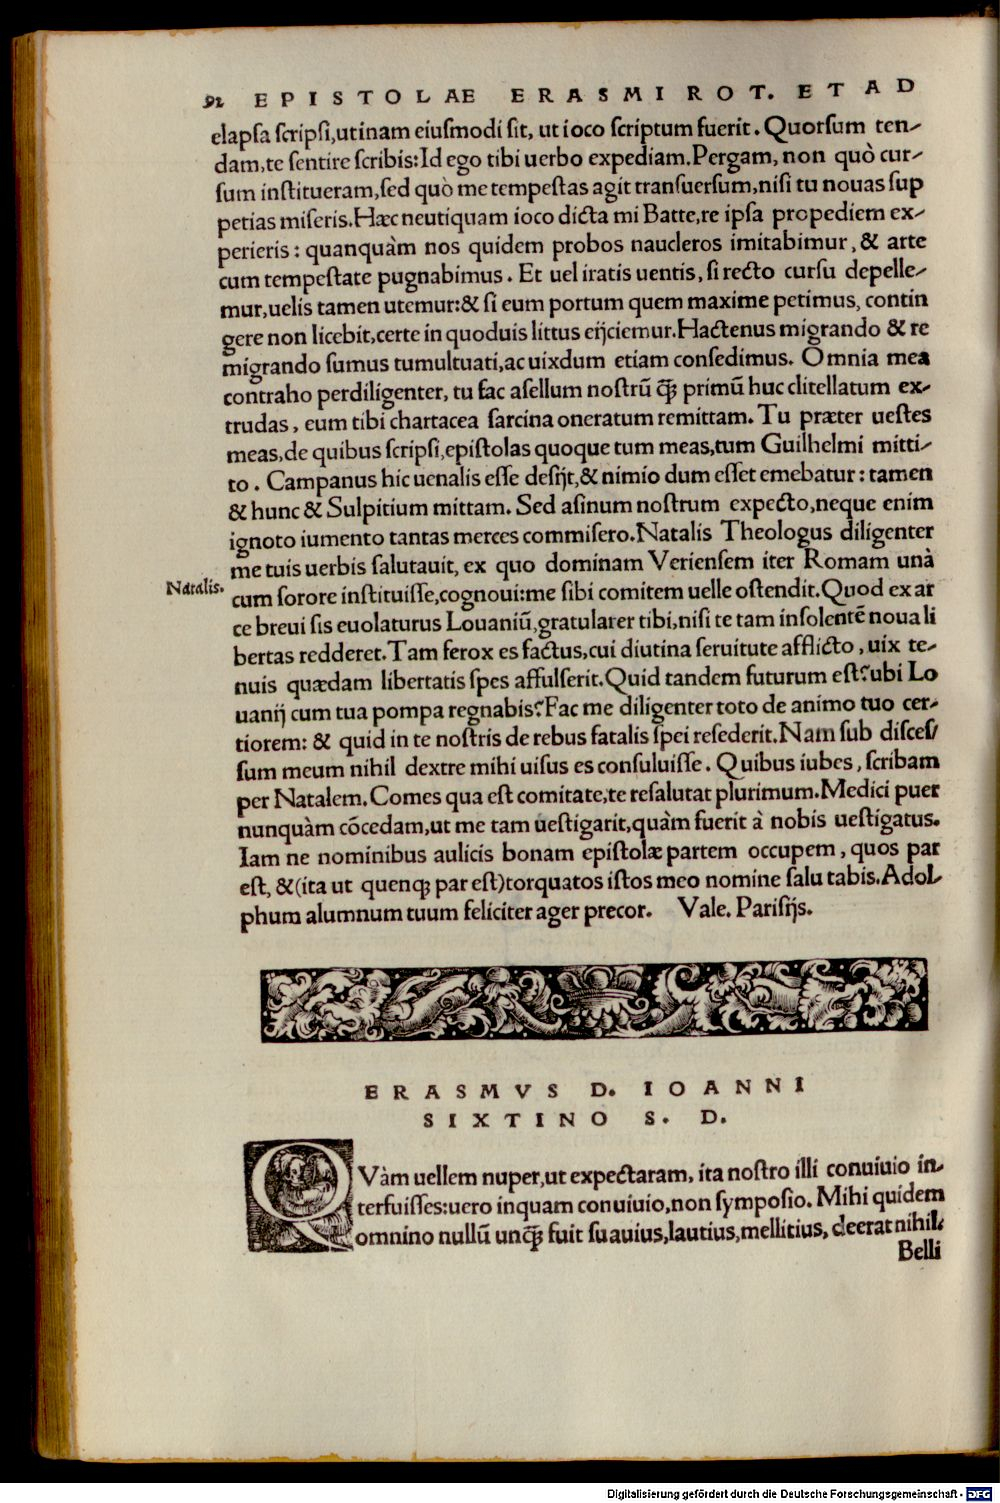 92 EPISTOLAE ERASMI ROT. ET AD
elapsa scripsi,utinam eiusmodi sit, ut ioco scriptum fuerit. Quorsum ten-
dam,te sentire scribis:Id ego tibi uerbo expediam.Pergam, non quò cur-
sum institueram,sed quò me tempestas agit transuersum,nisi tu nouas sup
petias miseris.Hæc neutiquam ioco dicta mi Batte,re ipsa propediem ex-
perieris: quanquàm nos quidem probos naucleros imitabimur, & arte
cum tempestate pugnabimus. Et uel iratis uentis, si recto cursu depelle-
mur,uelis tamen utemur:& si eum portum quem maxime petimus, contin
gere non licebit,certe in quoduis littus eijciemur.Hactenus migrando & re
migrando sumus tumultuati,ac uixdum etiam consedimus. Omnia mea
contraho perdiligenter, tu fac asellum nostrũ q̃ꝫ primũ huc clitellatum ex-
trudas, eum tibi chartacea sarcina oneratum remittam. Tu præter uestes
meas,de quibus scripsi,epistolas quoque tum meas,tum Guilhelmi mitti-
to. Campanus hic uenalis esse desijt,& nimio dum esset emebatur: tamen
& hunc & Sulpitium mittam. Sed asinum nostrum expecto,neque enim
ignoto iumento tantas merces commisero.Natalis Theologus diligenter
me tuis uerbis salutauit, ex quo dominam Veriensem iter Romam unà
Natalis.
cum sorore instituisse,cognoui:me sibi comitem uelle ostendit.Quod ex ar
ce breui sis euolaturus Louaniũ,gratularer tibi,nisi te tam insolentẽ noua li
bertas redderet.Tam ferox es factus,cui diutina seruitute afflicto, uix te-
nuis quædam libertatis spes affulserit.Quid tandem futurum est?ubi Lo
uanij cum tua pompa regnabis?Fac me diligenter toto de animo tuo cer-
tiorem: & quid in te nostris de rebus fatalis spei resederit.Nam sub disces/
sum meum nihil dextre mihi uisus es consuluisse. Quibus iubes, scribam
per Natalem.Comes qua est comitate,te resalutat plurimum.Medici puer
nunquàm cõcedam,ut me tam uestigarit,quàm fuerit à nobis uestigatus.
Iam ne nominibus aulicis bonam epistolæ partem occupem, quos par
est, &(ita ut quenqꝫ par est)torquatos istos meo nomine salu tabis.Adol-
phum alumnum tuum feliciter ager precor. Vale. Parisijs.
ERASMVS D. IOANNI
SIXTINO S. D.
QVàm uellem nuper,ut expectaram, ita nostro illi conuiuio in-
terfuisses:uero inquam conuiuio,non symposio. Mihi quidem
omnino nullũ unq̃ꝫ fuit suauius,lautius,mellitius, deerat nihil.
Belli
Digitalisierung gefördert durch die Deutsche Forschungsgemeinschaft - DFG